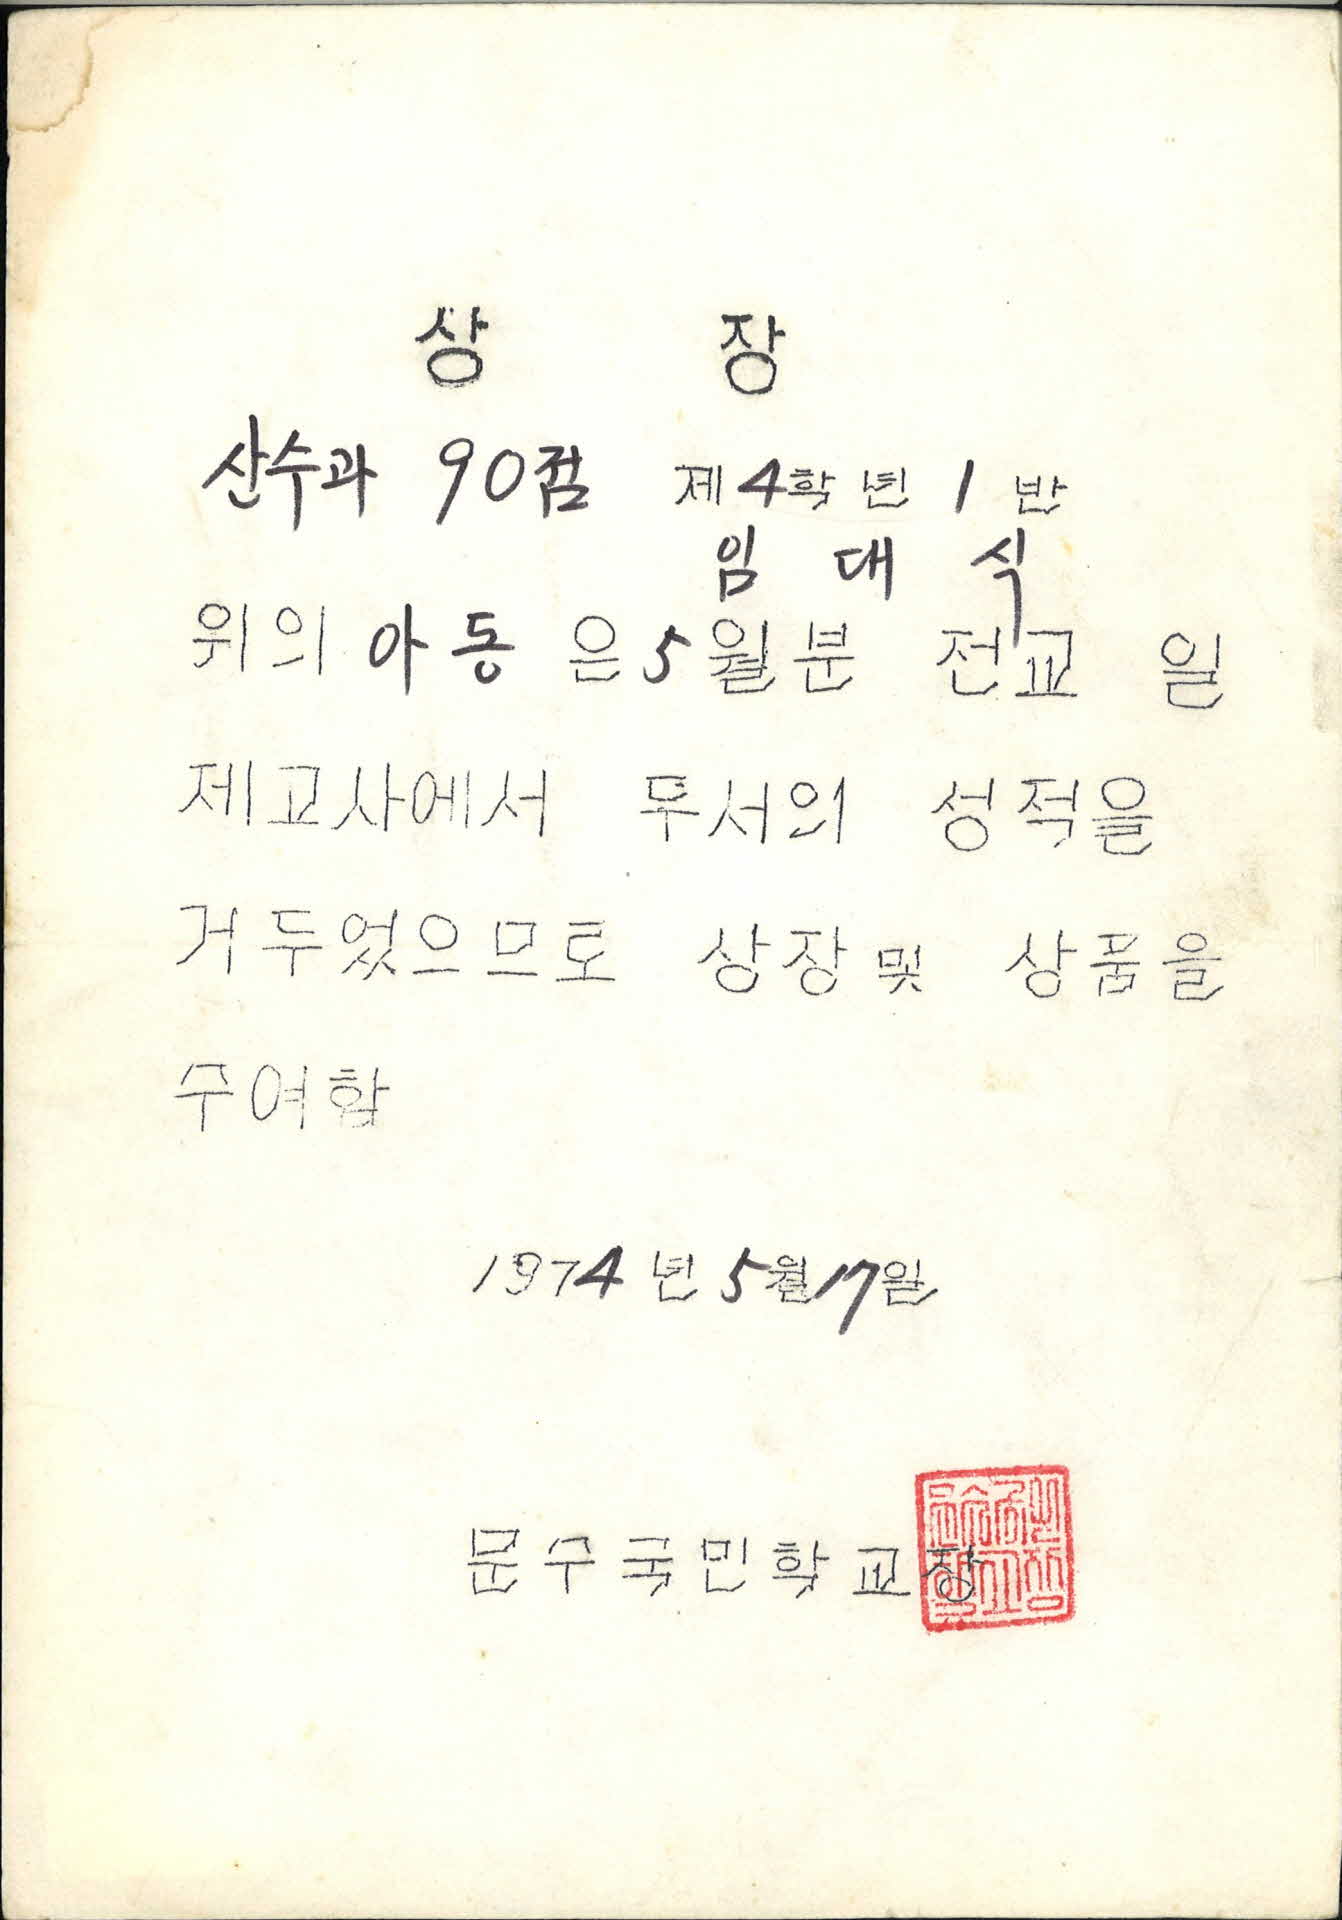 상 장
산수과 90점 제4학년 1반
임 대 식
위의 아동은 5월분 전교 일
제고사에서 두서의 성적을
거두었으므로 상장 및 상품을
수여함
1974년 5월 17일
문수국민학교장